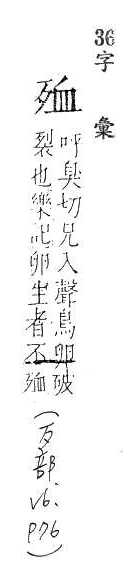 36字彙
殈
呼臭切兄入聲鳥卵破
裂也樂記卵生者不殈
(歹部 v6. p76)